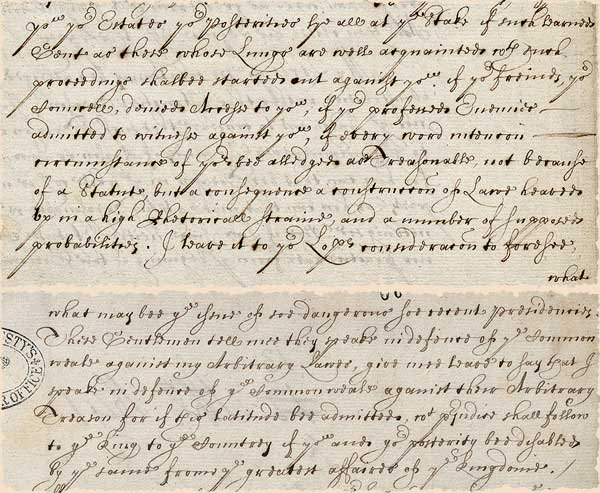 yow yor Estates yor Posterities lye all at ye Stake if such Learned
Gent as these whose Lungs are well acquainted wth such
proceedings shalbee started out against yow if yor freinds, yor
Councell, denied Accesse to yow, if yor professed Enemies
admitted to witnesse against yow, if every word intencon
circumstance of yors bee alledged as Treasonable, not because
of a Statute, but a consequence a construccon of Lawe heaved
up in a high Rhetoricall straine, and a number of supposed
probabilities. I leave it to yor Lopps consideracon to foresee,
what
what may bee ye issue of soe dangerous soe recent Presidencies.
These Gentlemen tell mee they speake in defence of ye Common
weale against my Arbitrary Lawes, give mee leave to say that I
speake in defence of ye Common weale against their Arbitrary
Treason for if this latitude bee admitted, wt prjudice shall follow
to ye King to ye Countrey if yow and yor posterity bee disabled
by ye same frome ye greatest affaires of ye Kingdome. /
STY'S
R OFFICE